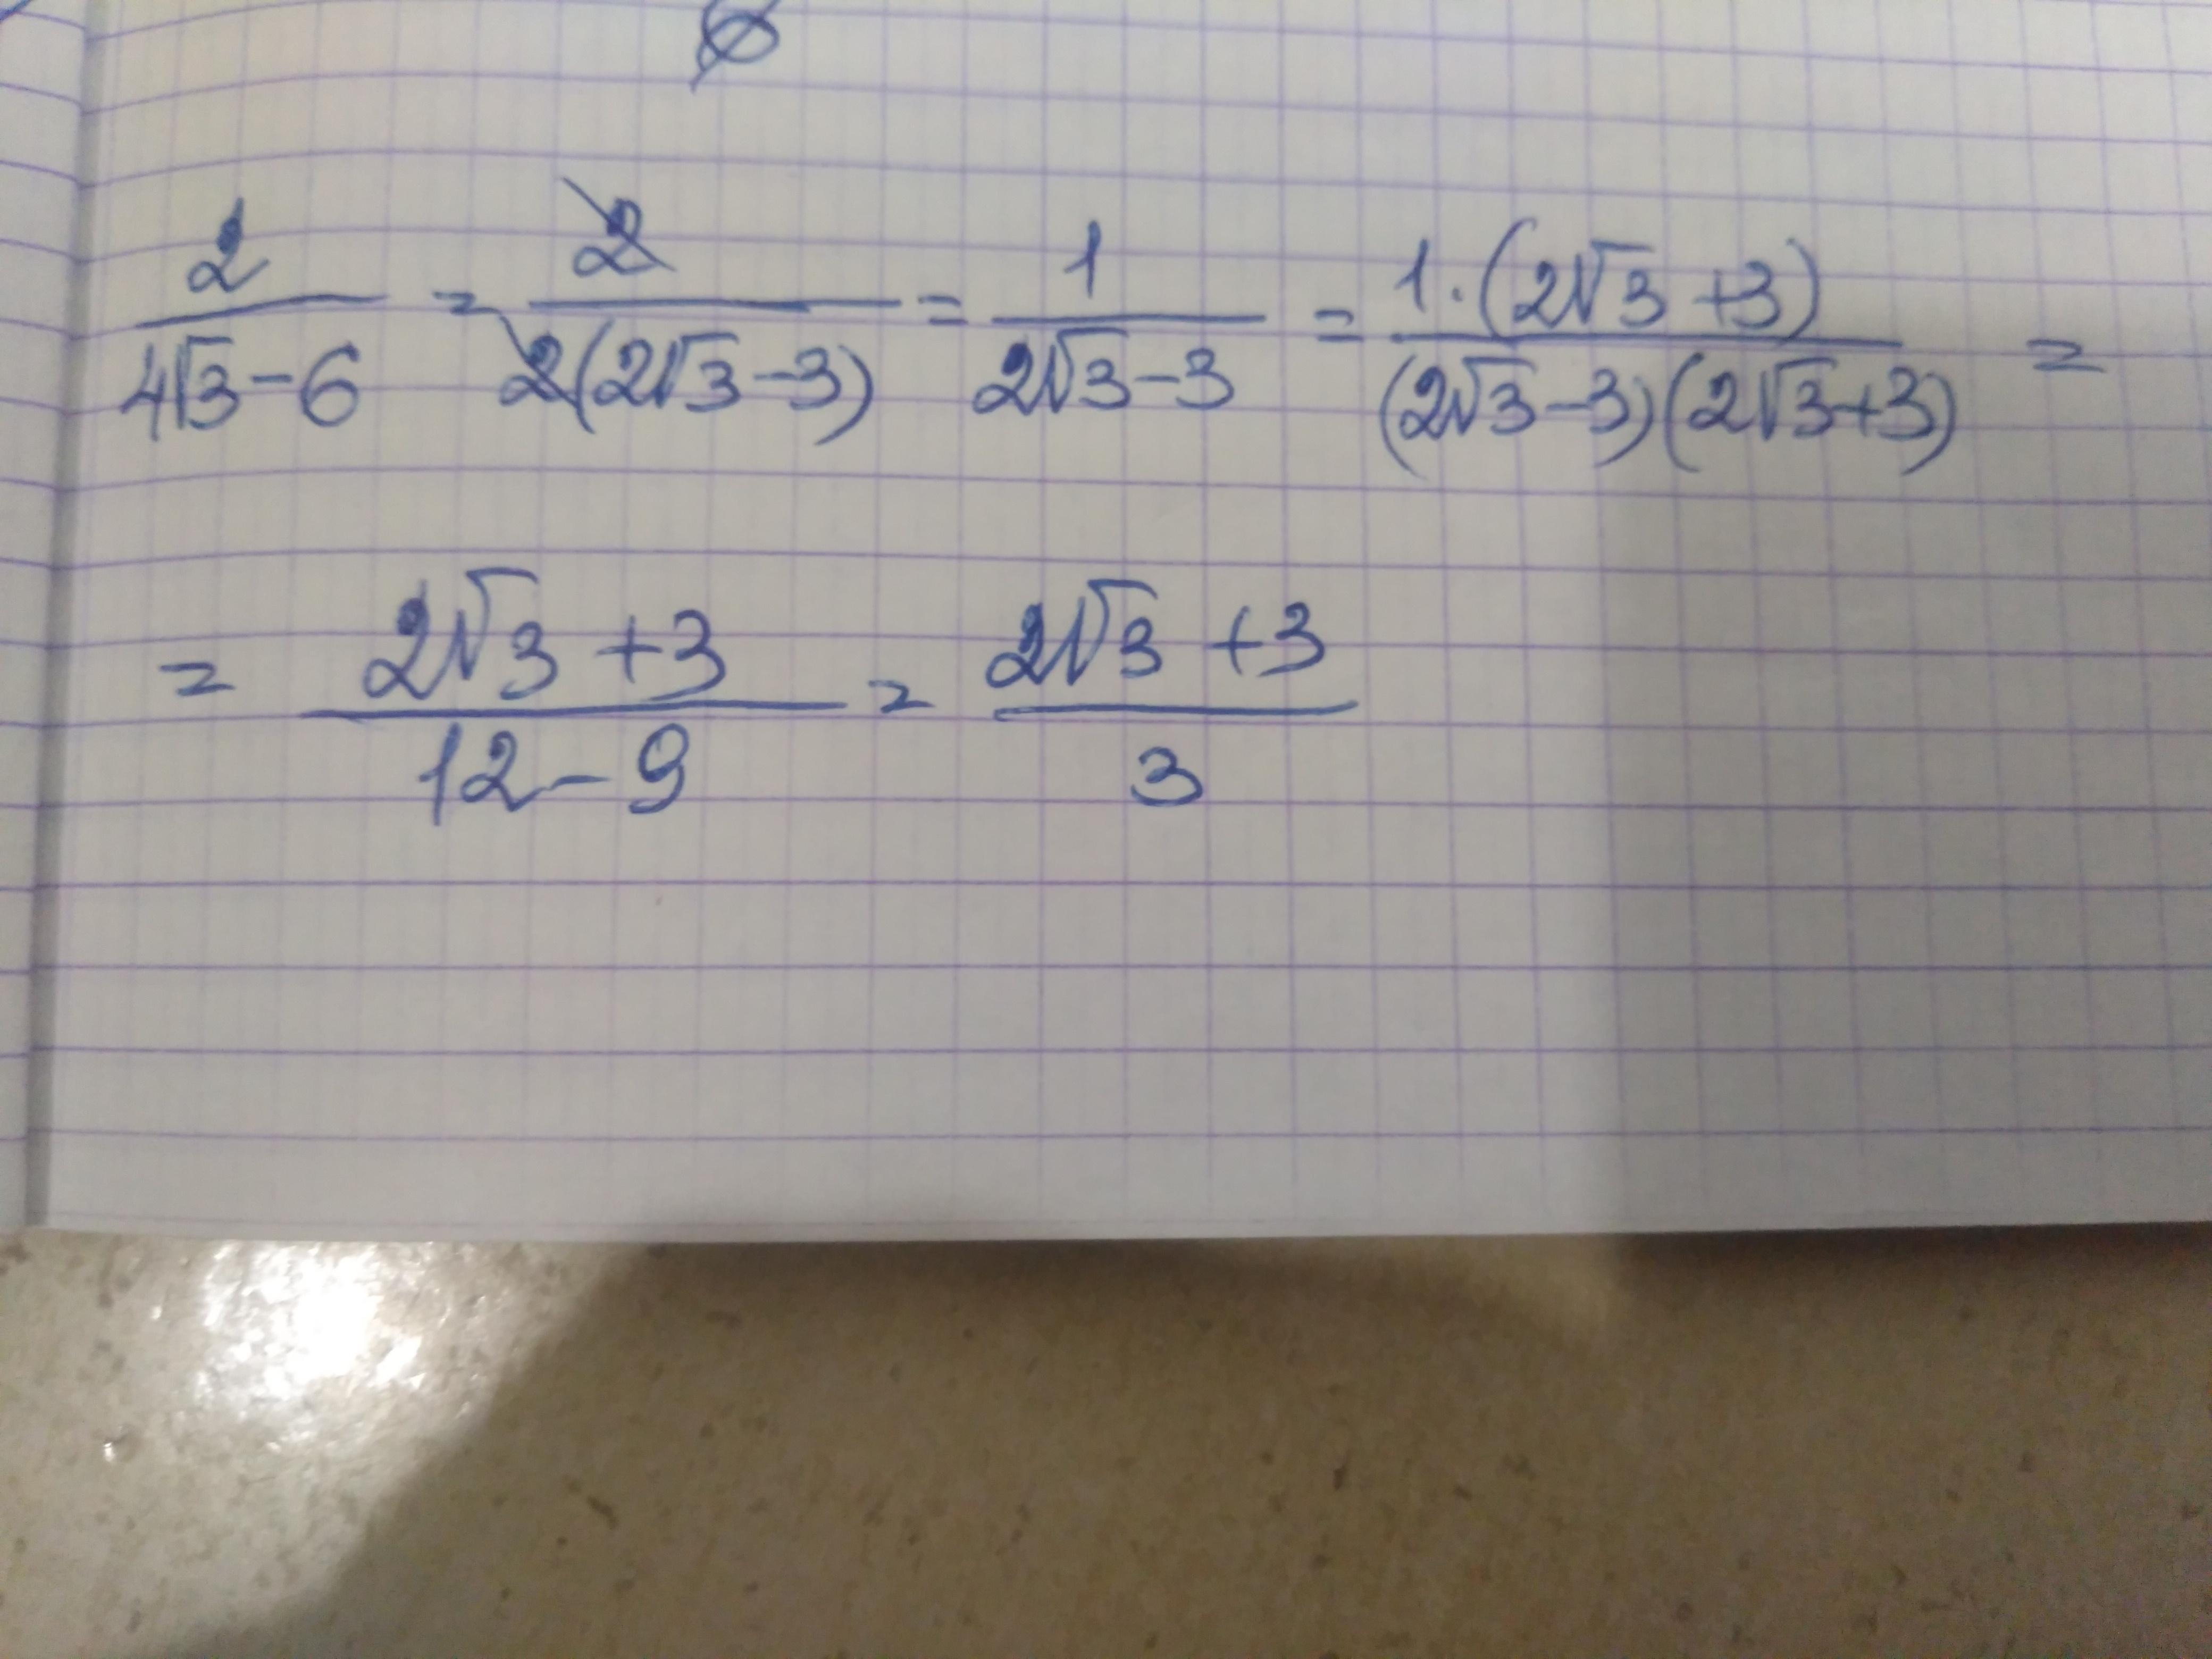 2/(4√3-6) = 2/(2(2√3-3)) = 1/(2√3-3) = 1·(2√3+3)/((2√3-3)(2√3+3)) =
= (2√3+3)/(12-9) = (2√3+3)/3